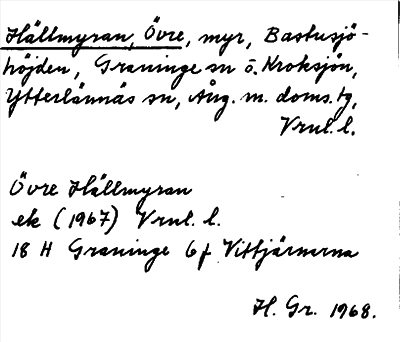 Hällmyran, Övre, myr, Bastusjö-
höjden, Graninge sn o. Kroksjön,
Ytterlännäs sn, Ång. m. doms. tg,
Vrnl. l.
Övre Hällmyran
ek (1967) Vrnl. l.
18 H Graninge 6 f Vittjärnarna
H. Gr. 1968.